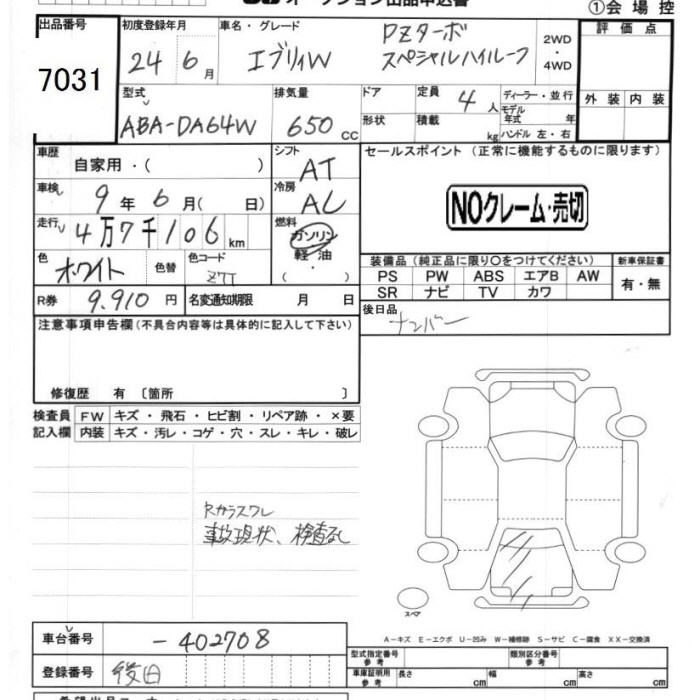 オークション出品申込書
①会場控
出品番号
7031
初度登録年月
24 6月
車名・グレード
エブリイW
PZターボ
スペシャルハイルーフ
2WD
・
4WD
評価点
外装 内装
型式
ABA-DA64W
排気量
650cc
ドア
形状
定員
4人
積載
kg
ディーラー・並行
モデル
年式 年
ハンドル 左・右
車歴
自家用・( )
シフト
AT
車検
9年6月( 日)
冷房
AC
走行
4万7千106km
燃料
ガソリン
軽油
( ・ )
色
ホワイト
色替
色コード
Z7T
R券
9.910円
名変通知期限 月 日
セールスポイント (正常に機能するものに限ります)
NOクレーム・売切
装備品(純正品に限り○をつけてください)
PS PW ABS エアB AW
SR ナビ TV カワ
新車保証書
有・無
後日品
ナンバー
注意事項申告欄(不具合内容等は具体的に記入して下さい)
修復歴 有 〔箇所 〕
検査員
記入欄
FW キズ・飛石・ヒビ割・リペア跡・×要
内装 キズ・汚レ・コゲ・穴・スレ・キレ・破レ
Rガラスワレ
事故現状、検査なし
スペア
A－キズ E－エクボ U－凹み W－補修跡 S－サビ C－腐食 XX－交換済
車台番号
-402708
登録番号
後日
型式指定番号
参考
類別区分番号
参考
車庫証明用
参考
長さ cm
幅 cm
高さ cm